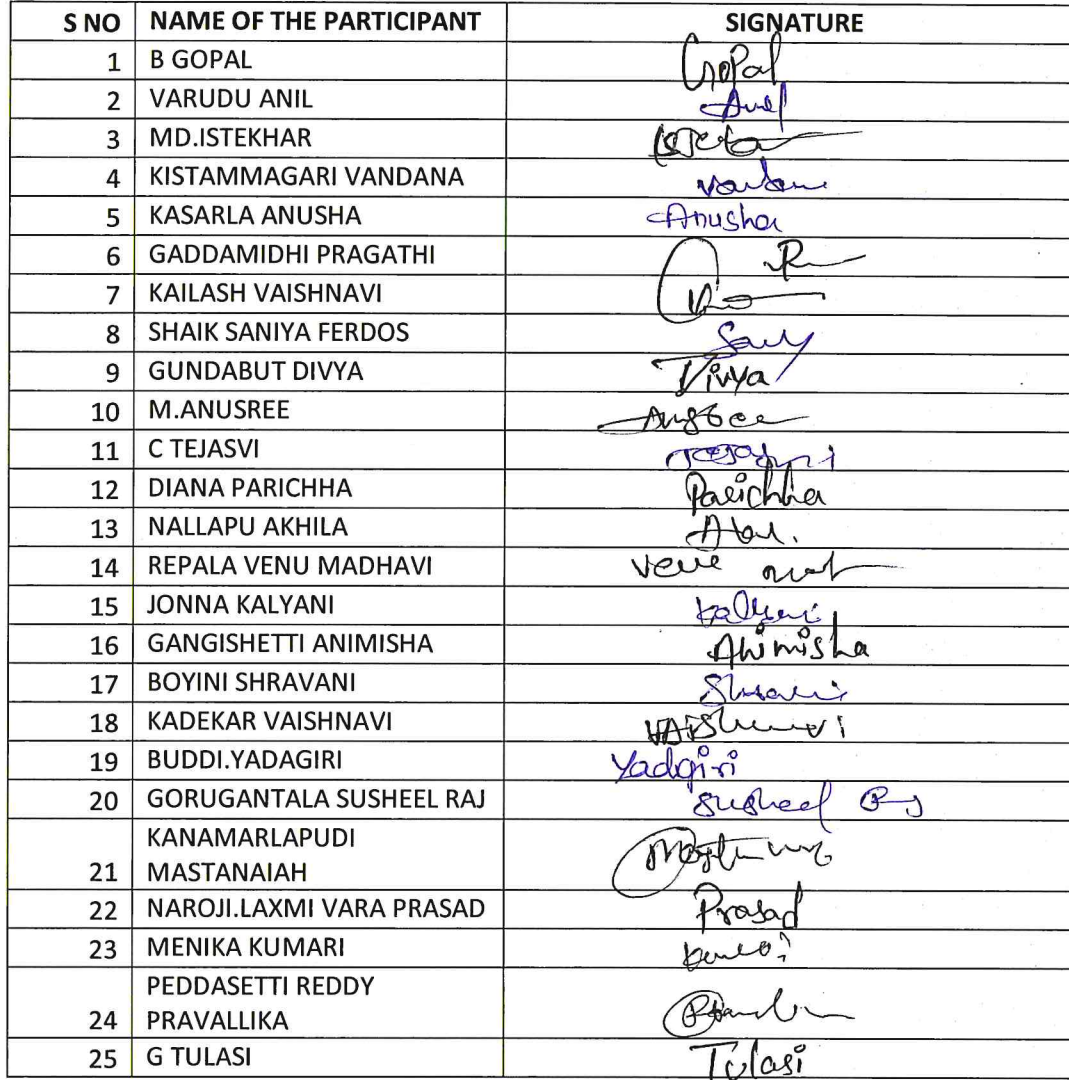 S NO NAME OF THE PARTICIPANT SIGNATURE
1 B GOPAL Gopal
2 VARUDU ANIL Anil
3 MD.ISTEKHAR
4 KISTAMMAGARI VANDANA
5 KASARLA ANUSHA Anusha
6 GADDAMIDHI PRAGATHI
7 KAILASH VAISHNAVI
8 SHAIK SANIYA FERDOS
9 GUNDABUT DIVYA Divya
10 M.ANUSREE
11 C TEJASVI
12 DIANA PARICHHA Parichha
13 NALLAPU AKHILA
14 REPALA VENU MADHAVI
15 JONNA KALYANI Kalyani
16 GANGISHETTI ANIMISHA Animisha
17 BOYINI SHRAVANI
18 KADEKAR VAISHNAVI
19 BUDDI.YADAGIRI Yadgiri
20 GORUGANTALA SUSHEEL RAJ Susheel
KANAMARLAPUDI
21 MASTANAIAH
22 NAROJI.LAXMI VARA PRASAD Prasad
23 MENIKA KUMARI
PEDDASETTI REDDY
24 PRAVALLIKA
25 G TULASI Tulasi